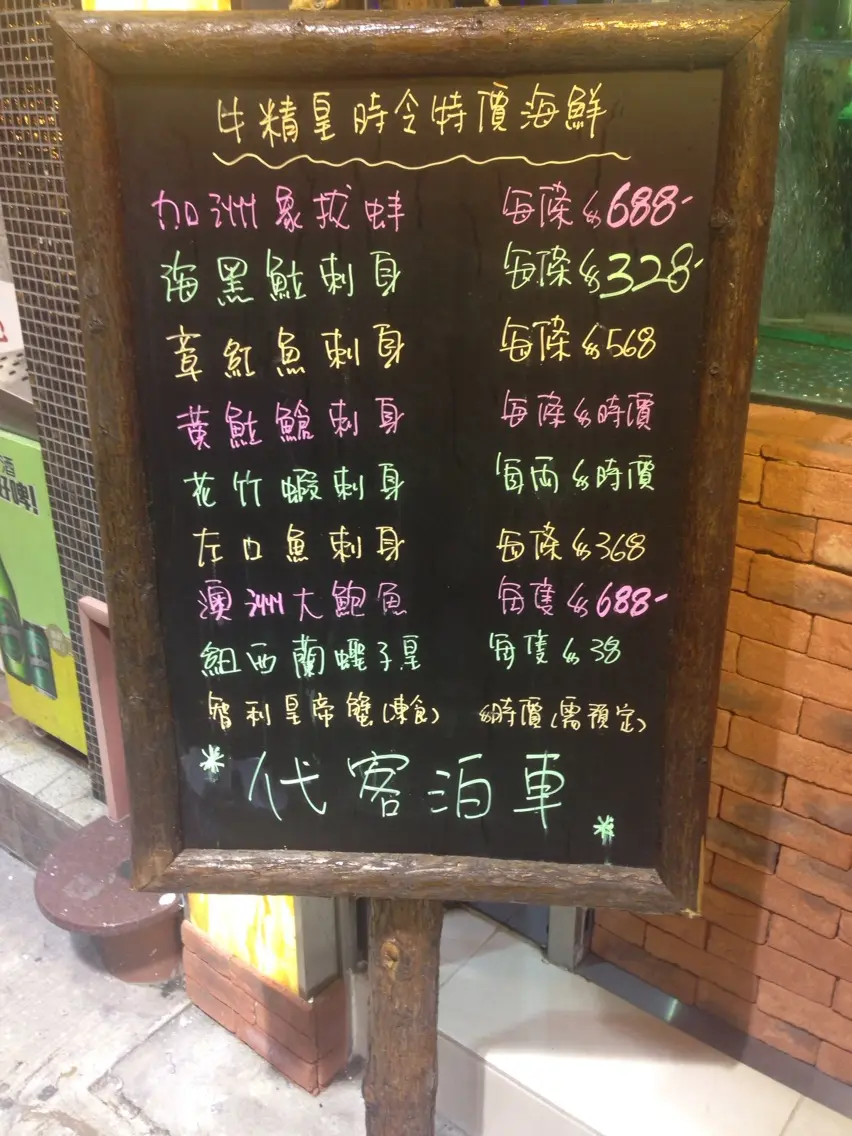 牛精皇時令特價海鮮
加洲象拔蚌 每條$688-
海黑鮏刺身 每條$328-
章紅魚刺身 每條$568
黃鮏鱠刺身 每條$時價
花竹蝦刺身 每両$時價
左口魚刺身 每條$368
澳洲大鮑魚 每隻$688-
紐西蘭蟶子皇 每隻$38
智利皇帝蟹(凍食) $時價(需預定)
*代客泊車*
酒
好啤!